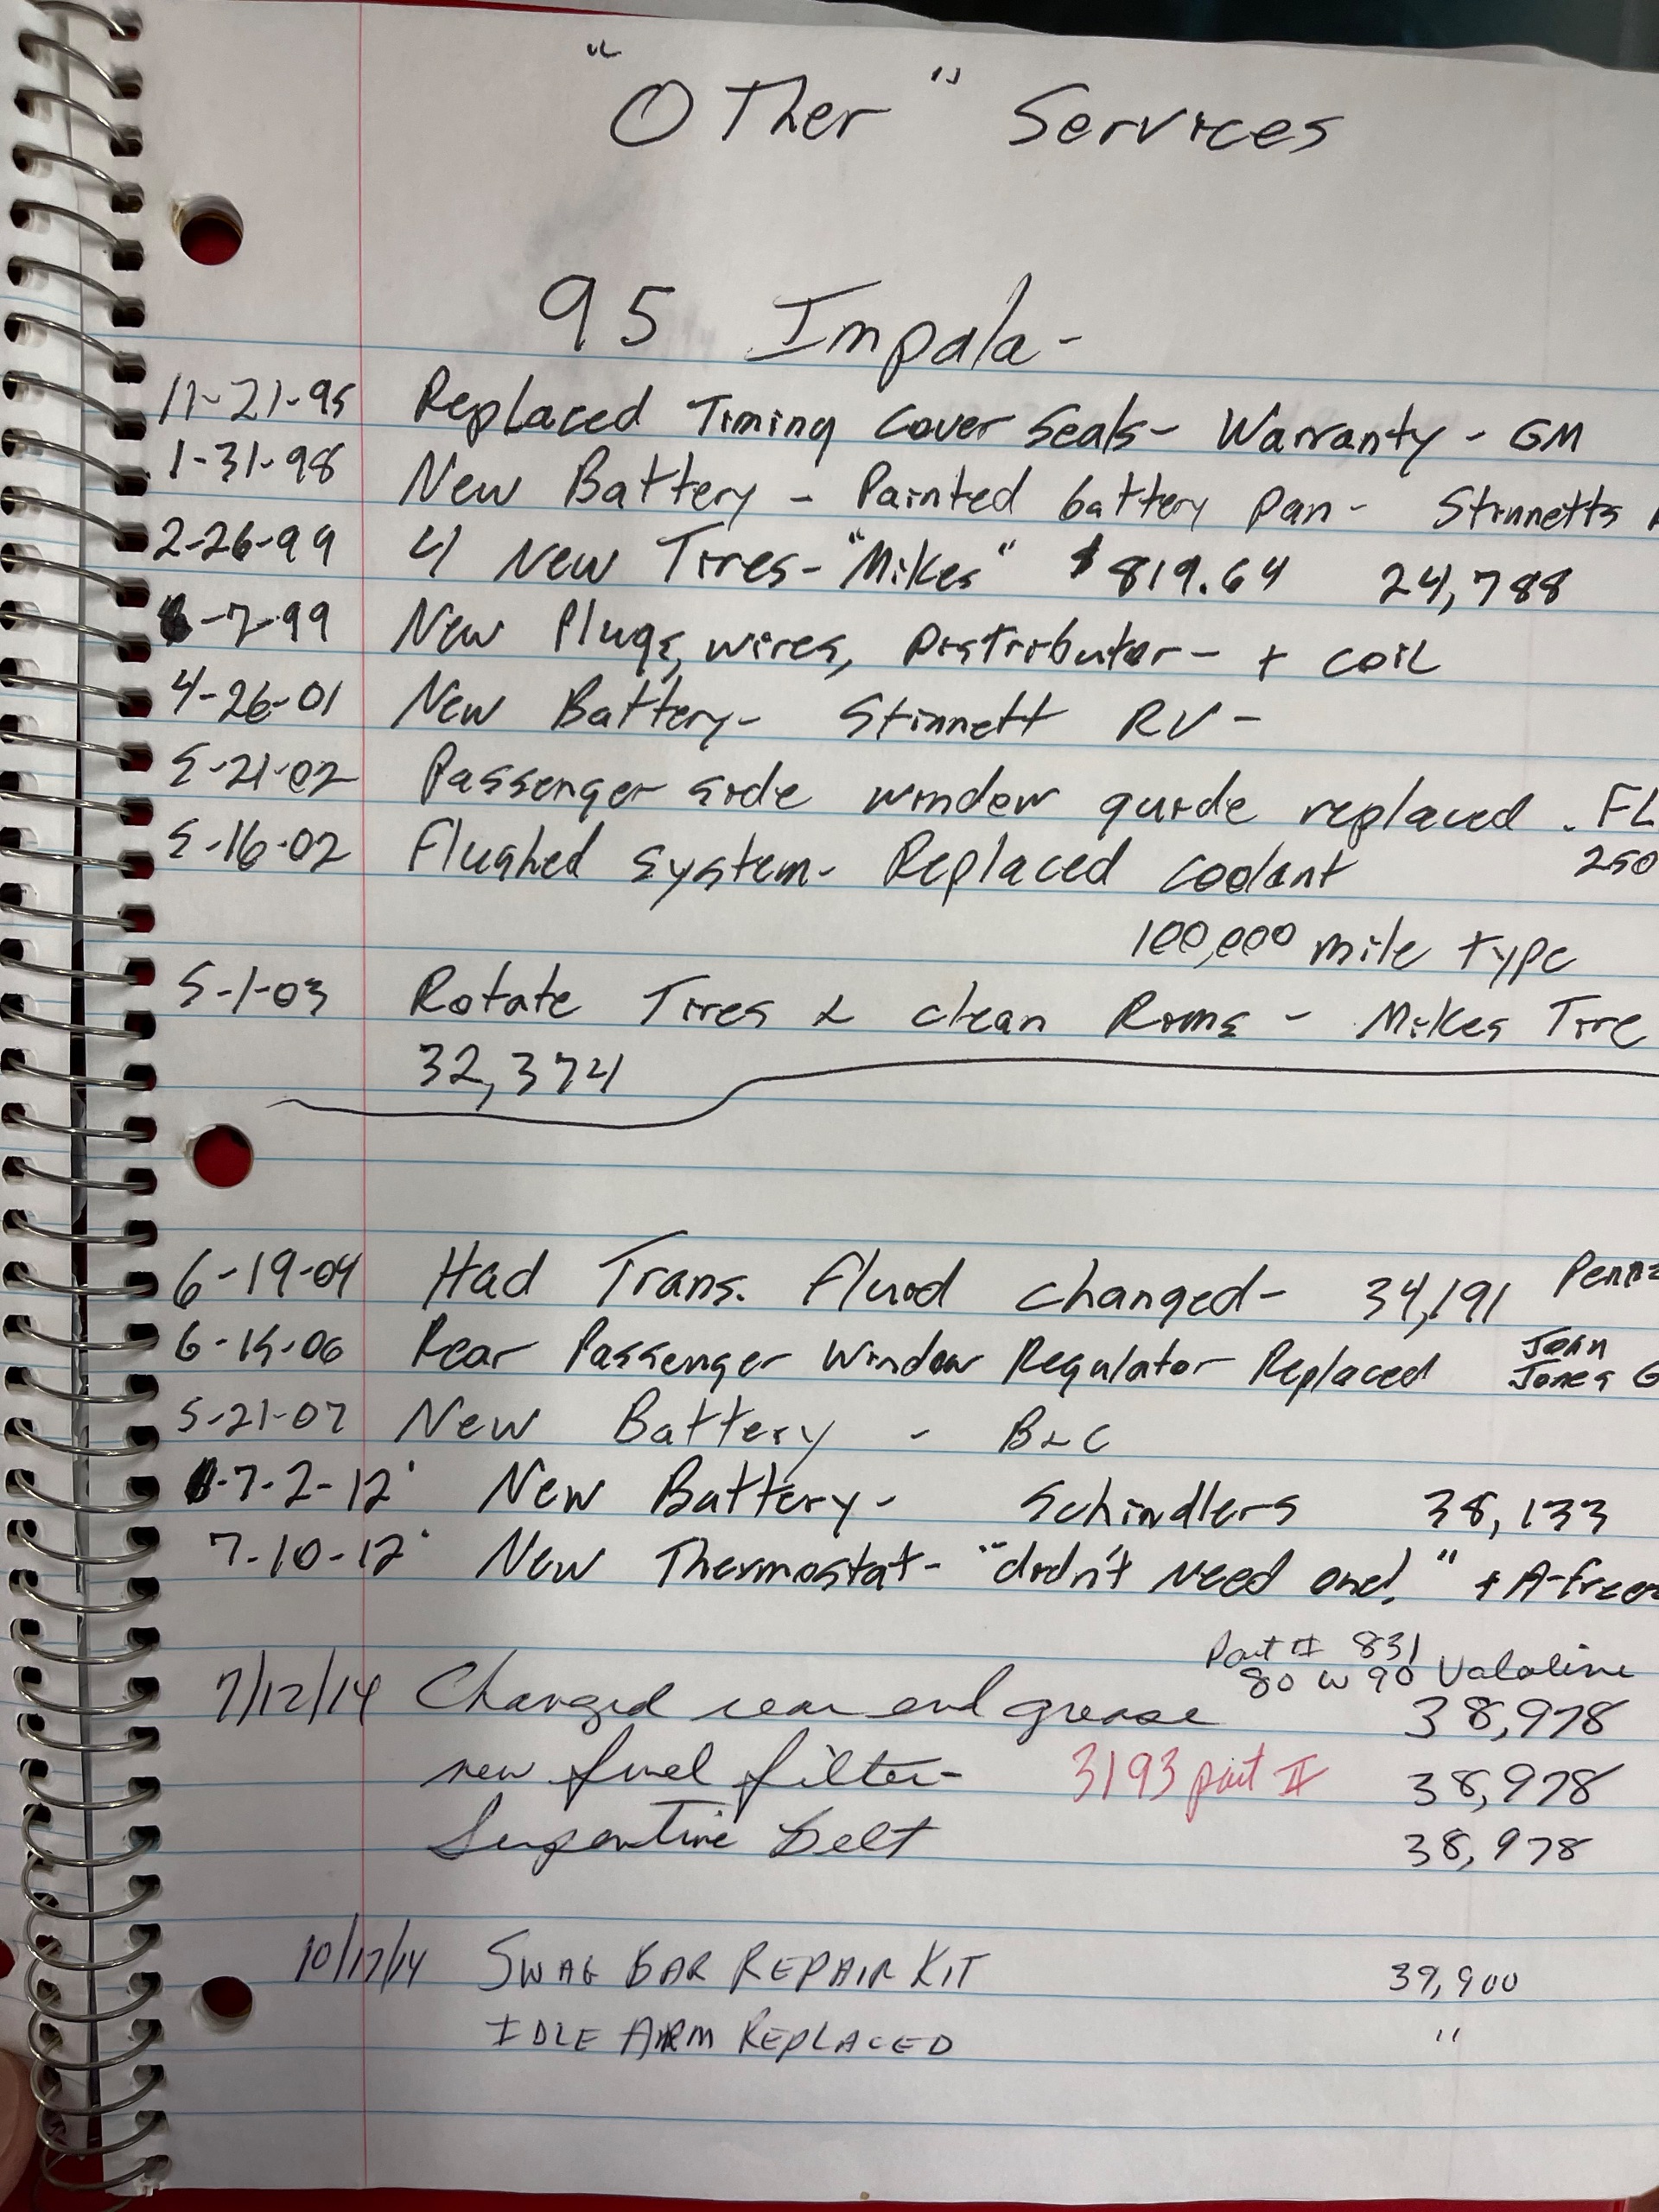 "OTher" Services
95 Impala-
11-21-95 Replaced Timing Cover Seals- Warranty - GM
1-31-98 New Battery - Painted battery pan - Stinnetts
2-26-99 4 New Tires- "Mikes" $819.64 24,788
-7-99 New Plugs, wires, Distributor- + coil
4-26-01 New Battery- Stinnett RV-
5-21-02 Passenger side window guide replaced . FL
250
5-16-02 Flushed system- Replaced coolant
100,000 mile type
5-1-03 Rotate Tires & clean Rims - Mikes Tire
32,374
6-19-04 Had Trans. Fluid changed- 34,191 Pennz
6-15-06 Rear Passenger Window Regulator Replaced John
Jones G
5-21-07 New Battery - B&C
7-2-12 New Battery- Schindlers 38,133
7-10-12 New Thermostat- "didn't need one!" + A-freez
Part # 831
80 W 90 Valoline
7/12/14 Changed rear end grease 38,978
new fuel filter- 3193 part # 38,978
Serpentine belt 38,978
10/17/14 SWAG BAR REPAIR KIT 39,900
IDLE ARM REPLACED "